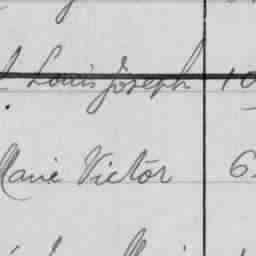 Louis Joseph 10
Marie Victor 6